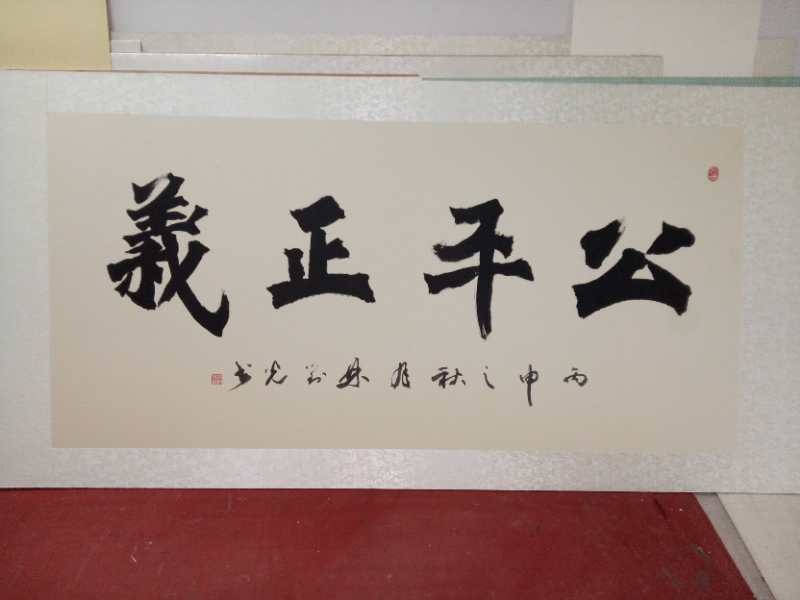 公平正義
丙申之秋月 光书